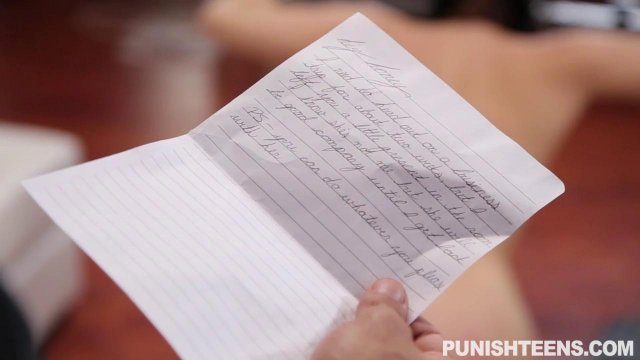 I must be head out on a business
trip for about two weeks but I
left you a little present in the
I know its not me but she will
be good company until I get back
PS: you can do whatever you please
with her
PUNISHTEENS.COM